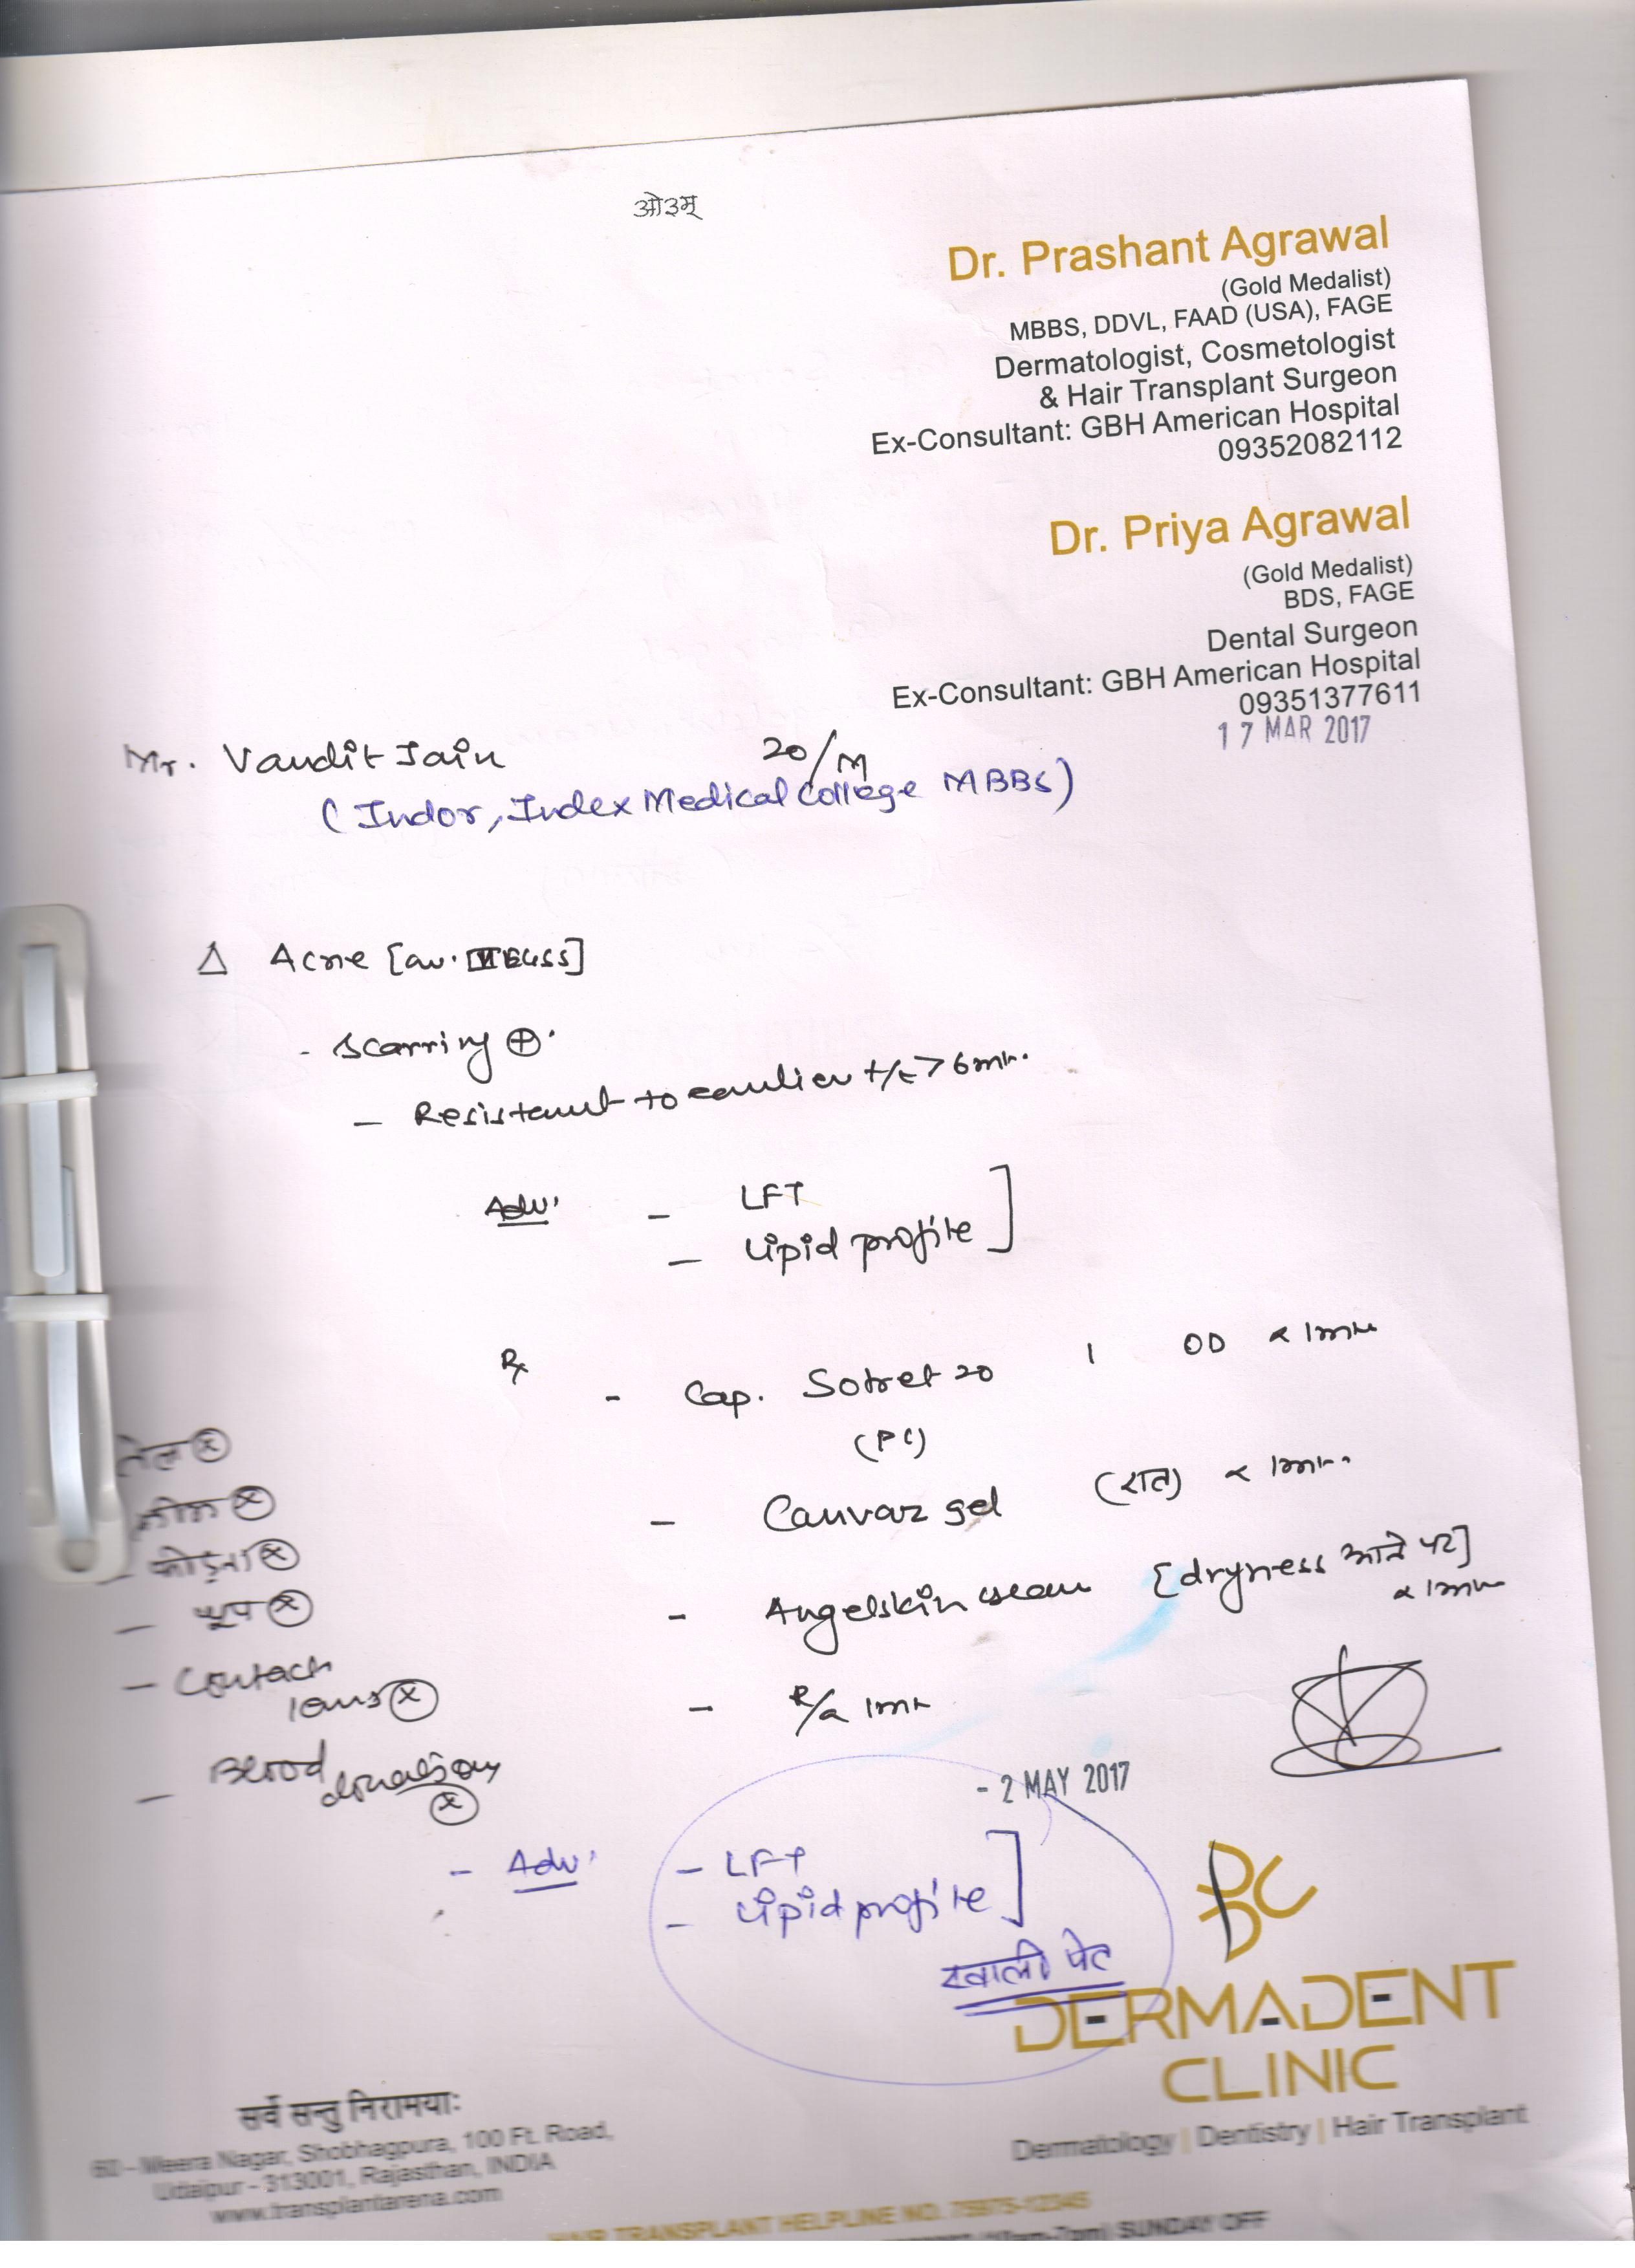 ओ३म्
Dr. Prashant Agrawal
(Gold Medalist)
MBBS, DDVL, FAAD (USA), FAGE
Dermatologist, Cosmetologist
& Hair Transplant Surgeon
Ex-Consultant: GBH American Hospital
09352082112
Dr. Priya Agrawal
(Gold Medalist)
BDS, FAGE
Dental Surgeon
Ex-Consultant: GBH American Hospital
09351377611
17 MAR 2017
Mr. Vaudit Jain 20/M
(Indor, Index Medical College MBBS)
Δ Acne
- Scarring ⊕
- Resistant to earlier t/t > 6mth.
Adv. - LFT
- Lipid profile ]
Rx
- Cap. Sotret 20 1 OD x 1mth
(PC)
- Canvaz gel (रात) x 1mth.
- Angelskin cream [dryness आने पर]
x 1mth
- R/a 1mth
तेल ⓧ
क्रीम ⓧ
फोड़ना ⓧ
- धूप ⓧ
- Contact
lens ⓧ
- Blood donation
ⓧ
- 2 MAY 2017
- Adv. - LFT
- Lipid profile ]
खाली पेट
DERMADENT
CLINIC
Dermatology | Dentistry | Hair Transplant
सर्वे सन्तु निरामयाः
60 - Meera Nagar, Shobhagpura, 100 Ft. Road,
Udaipur - 313001, Rajasthan, INDIA
www.transplantarena.com
HAIR TRANSPLANT HELPLINE NO. 75975-12345
(10am-7pm) SUNDAY OFF